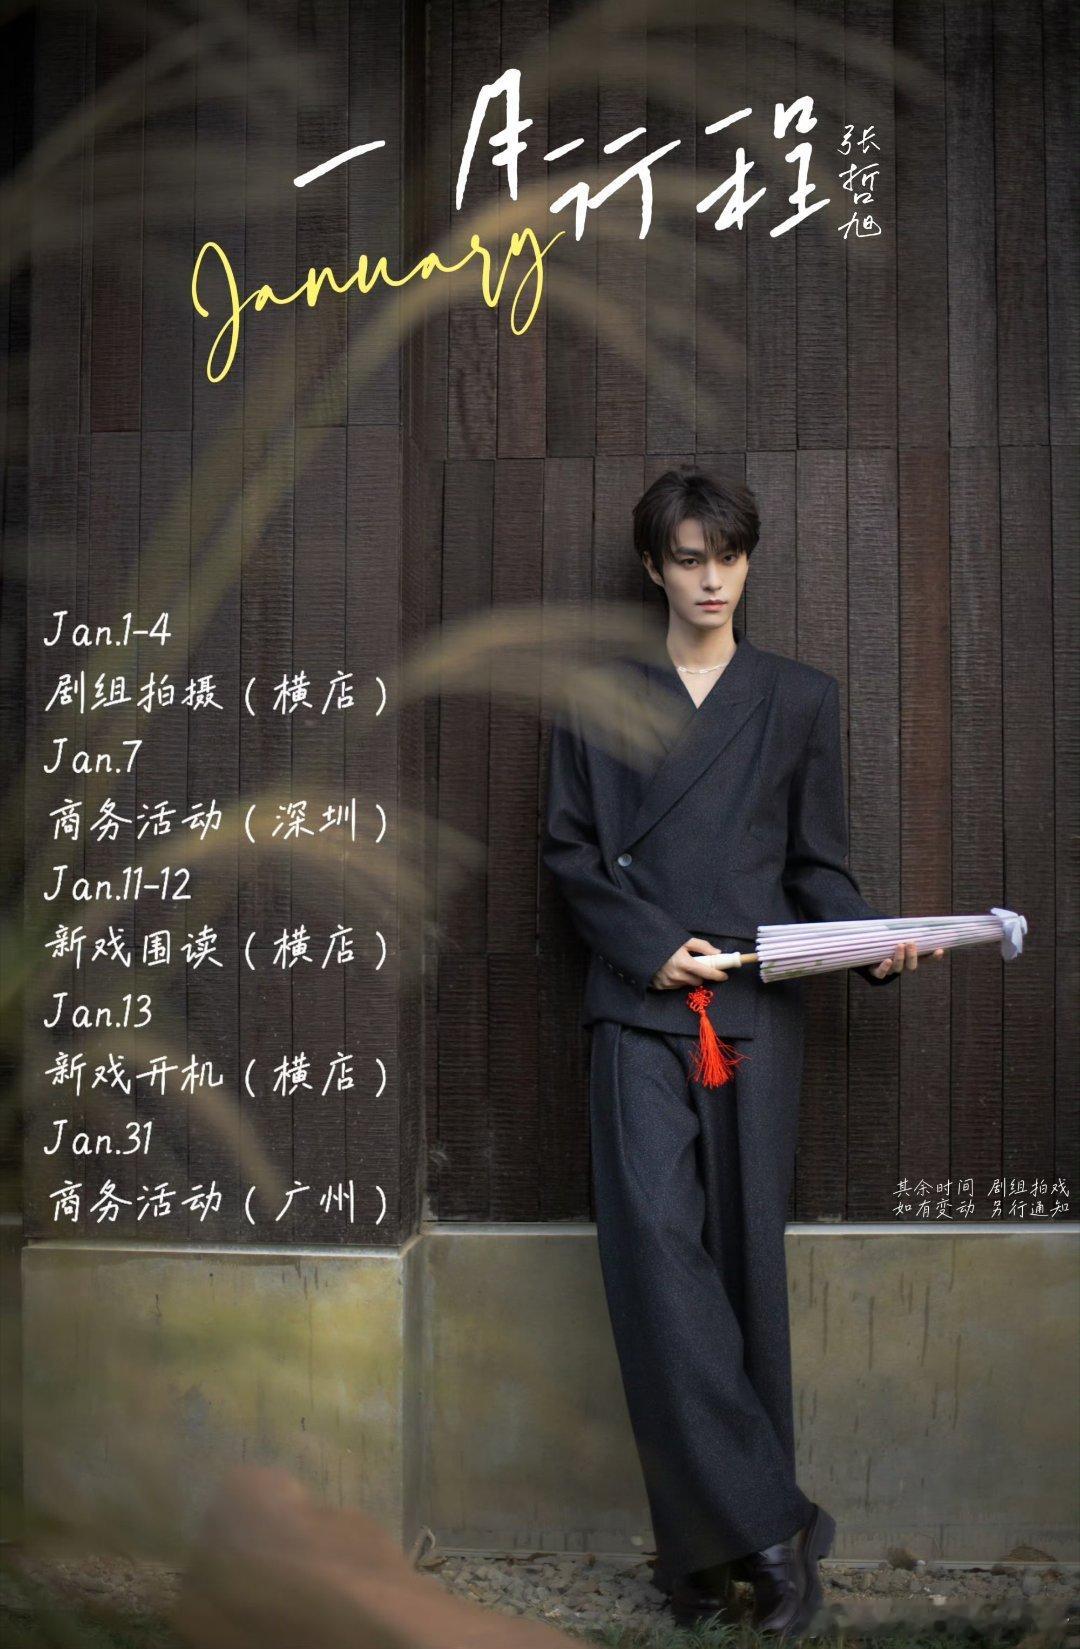 一月行程
张哲旭
January
Jan.1-4
剧组拍摄（横店）
Jan.7
商务活动（深圳）
Jan.11-12
新戏围读（横店）
Jan.13
新戏开机（横店）
Jan.31
商务活动（广州）
其余时间 剧组拍戏
如有变动 另行通知